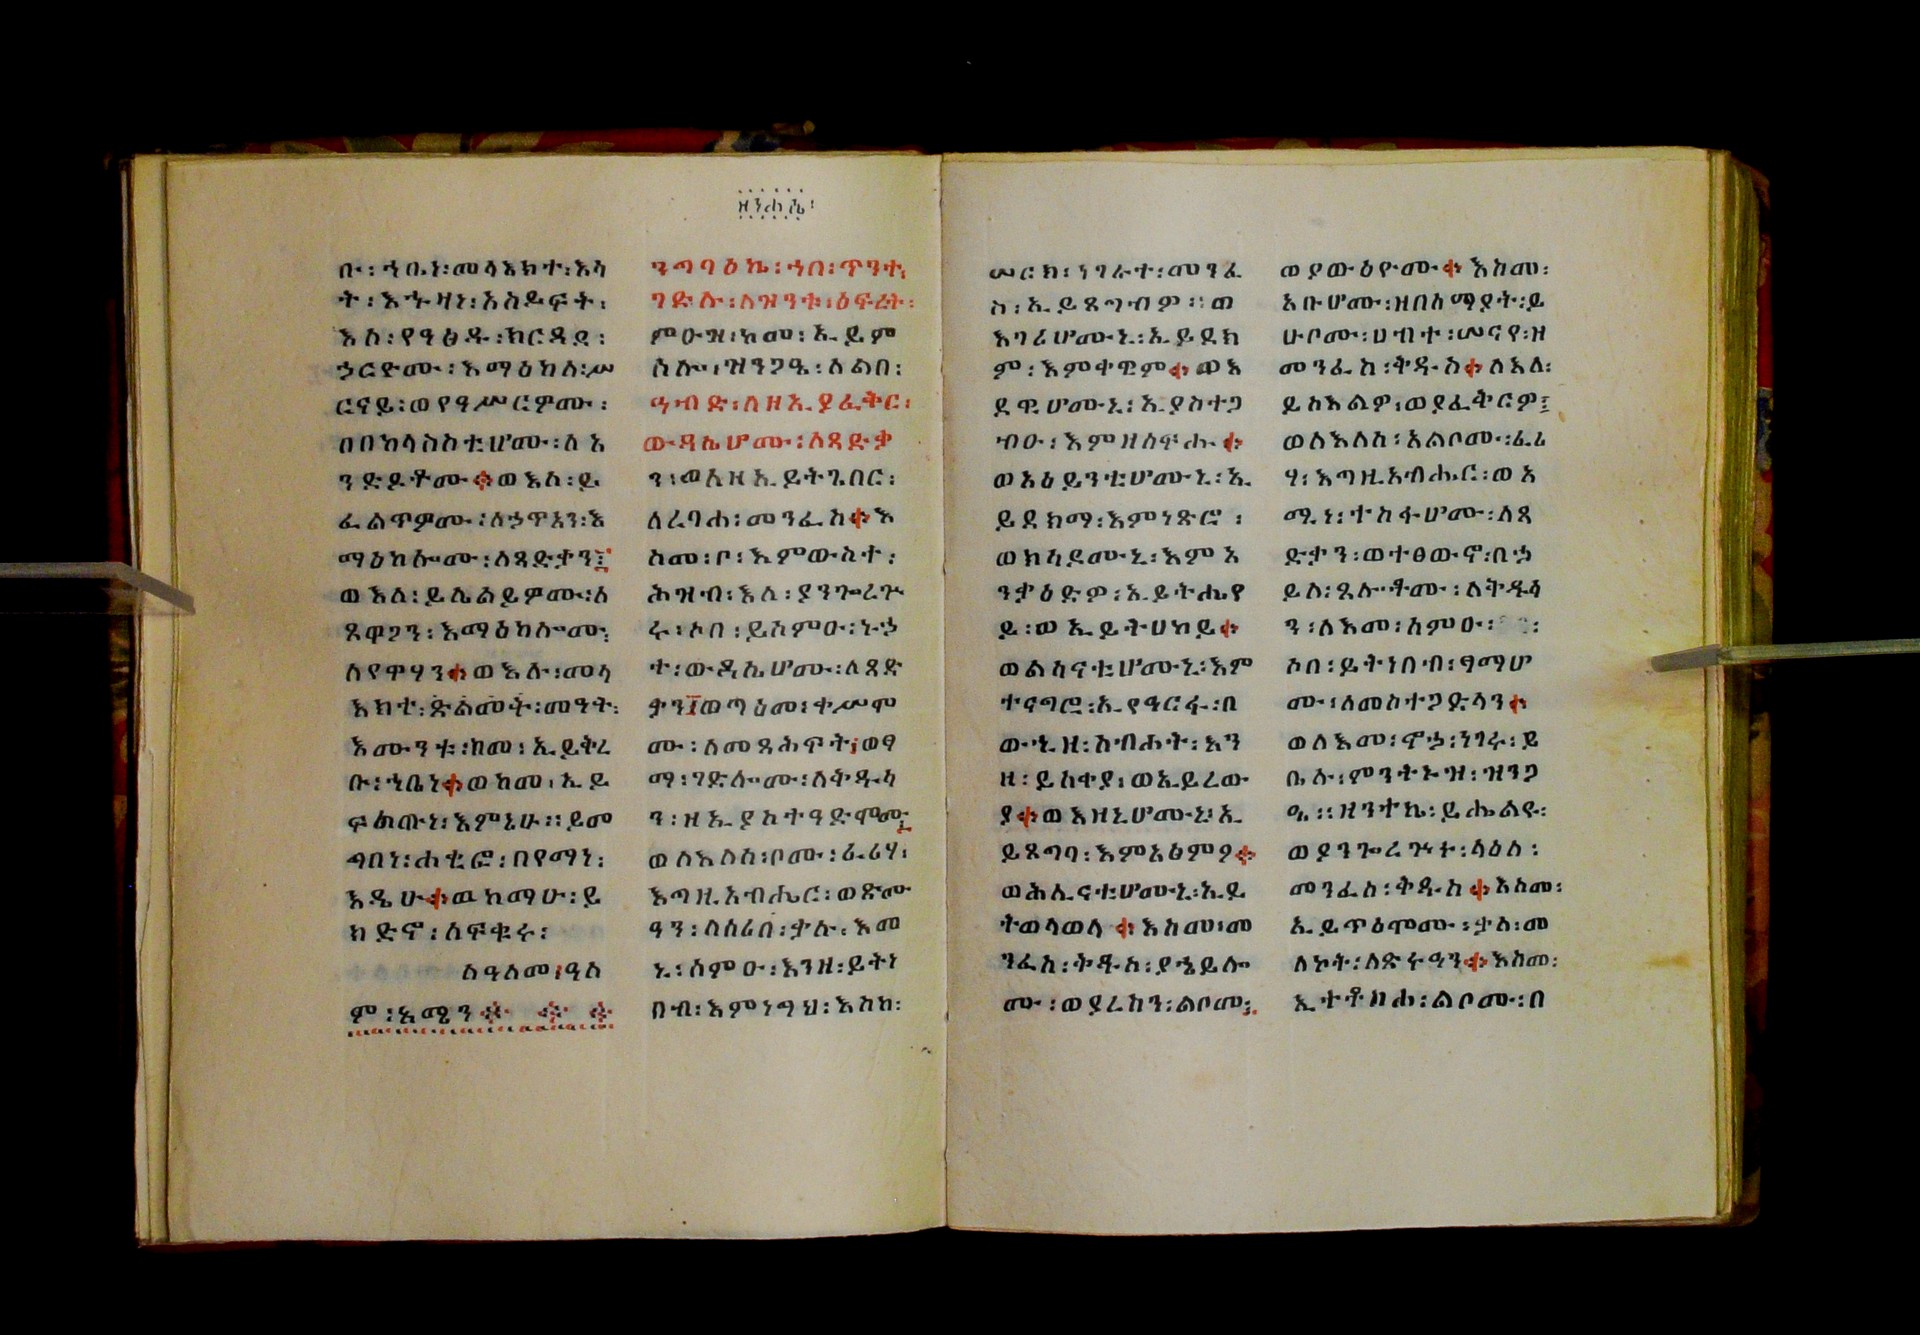 ዘንሐሼ፡
ቡ፡ኀቤነ፡መላእክተ፡እላ
ት፡እኍዛነ፡አስይፍት፡
እለ፡የዓፅዱ፡ክርዳደ፡
ኃርድሙ፡እማዕከለ፡ሥ
ርናይ፡ወየዓሥርዎሙ፡
በበከላስስቲሆሙ፡ለአ
ንድዶቶሙ፨ወእለ፡ይ
ፈልጥዎሙ፡ለኃጥአን፡እ
ማዕከሎሙ፡ለጻድቃን፤
ወእለ፡ይሌልይዎሙ፡ለ
ጸዋጋን፡እማዕከሎሙ፡
ለየዋሃን፨ወእሉ፡መላ
እክተ፡ጽልመት፡መዓት፡
እሙንቱ፡ከመ፡ኢይቅረ
ቡ፡ኀቤነ፨ወከመ፡ኢይ
ፍልጡነ፡እምኔሁ፡፡ይመ
ጣበነ፡ሐቲፎ፡በየማነ፡
እዴሁ፨ወከማሁ፡ይ
ክድኖ፡ለፍቁሩ፡
ለዓለመ፡ዓለ
ም፡አሜን፨ ፨ ፨
ንጣባዕኬ፡ኀበ፡ጥንተ፡
ገድሉ፡ለዝንቱ፡ዕፍረት፡
ምዑዝ፡ከመ፡ኢይም
ስሎ፡ዝንጋዔ፡ለልበ፡
ዓብድ፡ለዘኢያፈቅር፡
ውዳሴሆሙ፡ለጻድቃ
ን፡ወለዘኢይትጌበር፡
ለረባሐ፡መንፈስ፨እ
ስመ፡ቦ፡እምውስተ፡
ሕዝብ፡እለ፡ያንጐረጕ
ሩ፡ሶበ፡ይሰምዑ፡ኑኃ
ተ፡ውዳሴሆሙ፡ለጻድ
ቃን፤ወጣዕመ፡ተሥሞ
ሙ፡ለመጻሕፍት፡ወፃ
ማ፡ገድሎሙ፡ለቅዱሳ
ን፡ዘኢያስተዓድሞሙ፤
ወለእለሰ፡ቦሙ፡ፈሪሃ፡
እግዚአብሔር፡ወጽሙ
ዓን፡ለሰሪበ፡ቃሉ፡እመ
ኒ፡ሰምዑ፡እንዘ፡ይትነ
በብ፡እምነግህ፡እስከ፡
ሠርክ፡ነገራተ፡መንፈ
ስ፡ኢይጸግብዎ፡፡ወ
እገሪሆሙኒ፡ኢይደክ
ም፡እምቀዊም፨ወእ
ደዊሆሙኒ፡ኢያስተጋ
ብዑ፡እምዘሰፍሑ፨
ወአዕይንቲሆሙኒ፡ኢ
ይደክማ፡እምነጽሮ፡
ወክሳዶሙኒ፡እምአ
ንቃዕድዎ፡ኢይትሔየ
ይ፡ወኢይትሀከይ፨
ወልሳናቲሆሙኒ፡እም
ተናግሮ፡ኢየዓርፋ፡በ
ውሂዘ፡ስብሐት፡እን
ዘ፡ይሰቀያ፡ወኢይረው
ያ፨ወእዘኒሆሙኒ፡ኢ
ይጸግባ፡እምአፅምዖ፨
ወሕሊናቲሆሙኒ፡ኢይ
ትወላወላ፨እስመ፡መ
ንፈስ፡ቅዱስ፡ያኄይሎ
ሙ፡ወያረከን፡ልቦሙ፤
ወያውዕዮሙ፨እስመ፡
አቡሆሙ፡ዘበሰማያት፡ይ
ሁቦሙ፡ሀብተ፡ሠናየ፡ዘ
መንፈስ፡ቅዱስ፨ለእለ፡
ይስእልዎ፡ወያፈቅርዎ፤
ወለእለሰ፡አልቦሙ፡ፈሪ
ሃ፡እግዚአብሔር፡ወአ
ሚነ፡ተስፋሆሙ፡ለጻ
ድቃን፡ወተፀውኖ፡በኃ
ይለ፡ጸሎቶሙ፡ለቅዱሳ
ን፡ለእመ፡ሰምዑ፡
ሶበ፡ይትነበብ፡ፃማሆ
ሙ፡ለመስተጋድላን፨
ወለእመ፡ኖኃ፡ነገሩ፡ይ
ቤሉ፡ምንትኑዝ፡ዝንጋ
ዔ፡፡ዘንተኬ፡ይሔልዩ፡
ወያንጐረጕሩ፡ላዕለ፡
መንፈስ፡ቅዱስ፨እስመ፡
ኢይጥዕሞሙ፡ቃለ፡መ
ለኮት፡ለጽሩዓን፨እስመ፡
ኢተቶስሐ፡ልቦሙ፡በ